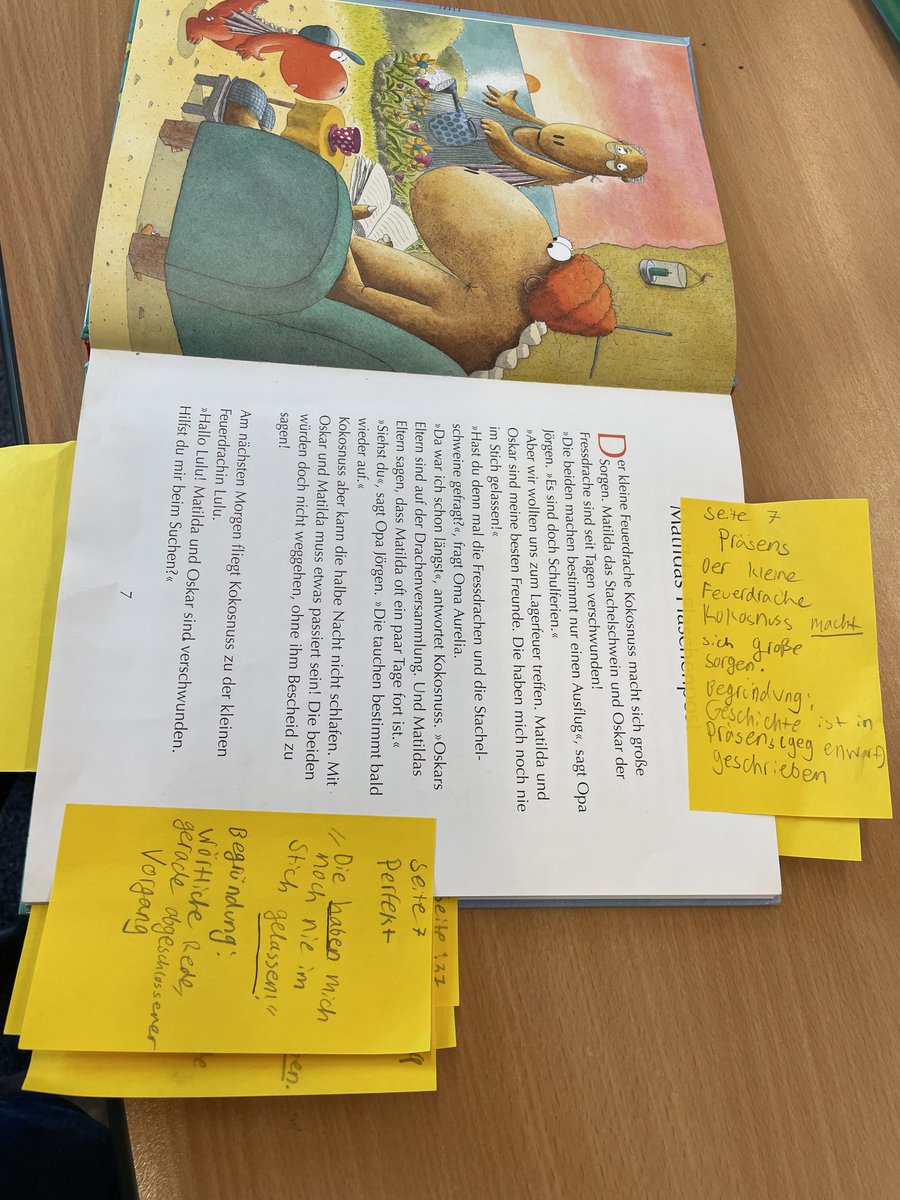 Seite 7
Präsens
Der kleine
Feuerdrache
Kokosnuss macht
sich große
sorgen.
Begründung:
Geschichte ist in
Präsens(gegenwart)
geschrieben
Der kleine Feuerdrache Kokosnuss macht sich große
Sorgen. Matilda das Stachelschwein und Oskar der
Fressdrache sind seit Tagen verschwunden!
»Die beiden machen bestimmt nur einen Ausflug«, sagt Opa
Jörgen. »Es sind doch Schulferien.«
»Aber wir wollten uns zum Lagerfeuer treffen. Matilda und
Oskar sind meine besten Freunde. Die haben mich noch nie
im Stich gelassen!«
»Hast du denn mal die Fressdrachen und die Stachel-
schweine gefragt?«, fragt Oma Aurelia.
»Da war ich schon längst«, antwortet Kokosnuss. »Oskars
Eltern sind auf der Drachenversammlung. Und Matildas
Eltern sagen, dass Matilda oft ein paar Tage fort ist.«
»Siehst du«, sagt Opa Jörgen. »Die tauchen bestimmt bald
wieder auf.«
Kokosnuss aber kann die halbe Nacht nicht schlafen. Mit
Oskar und Matilda muss etwas passiert sein! Die beiden
würden doch nicht weggehen, ohne ihm Bescheid zu
sagen!
Am nächsten Morgen fliegt Kokosnuss zu der kleinen
Feuerdrachin Lulu.
»Hallo Lulu! Matilda und Oskar sind verschwunden.
Hilfst du mir beim Suchen?«
7
Seite 7
Perfekt
"Die haben mich
noch nie im
Stich gelassen!"
Begründung:
Wörtliche Rede,
gerade abgeschlossener
Vorgang